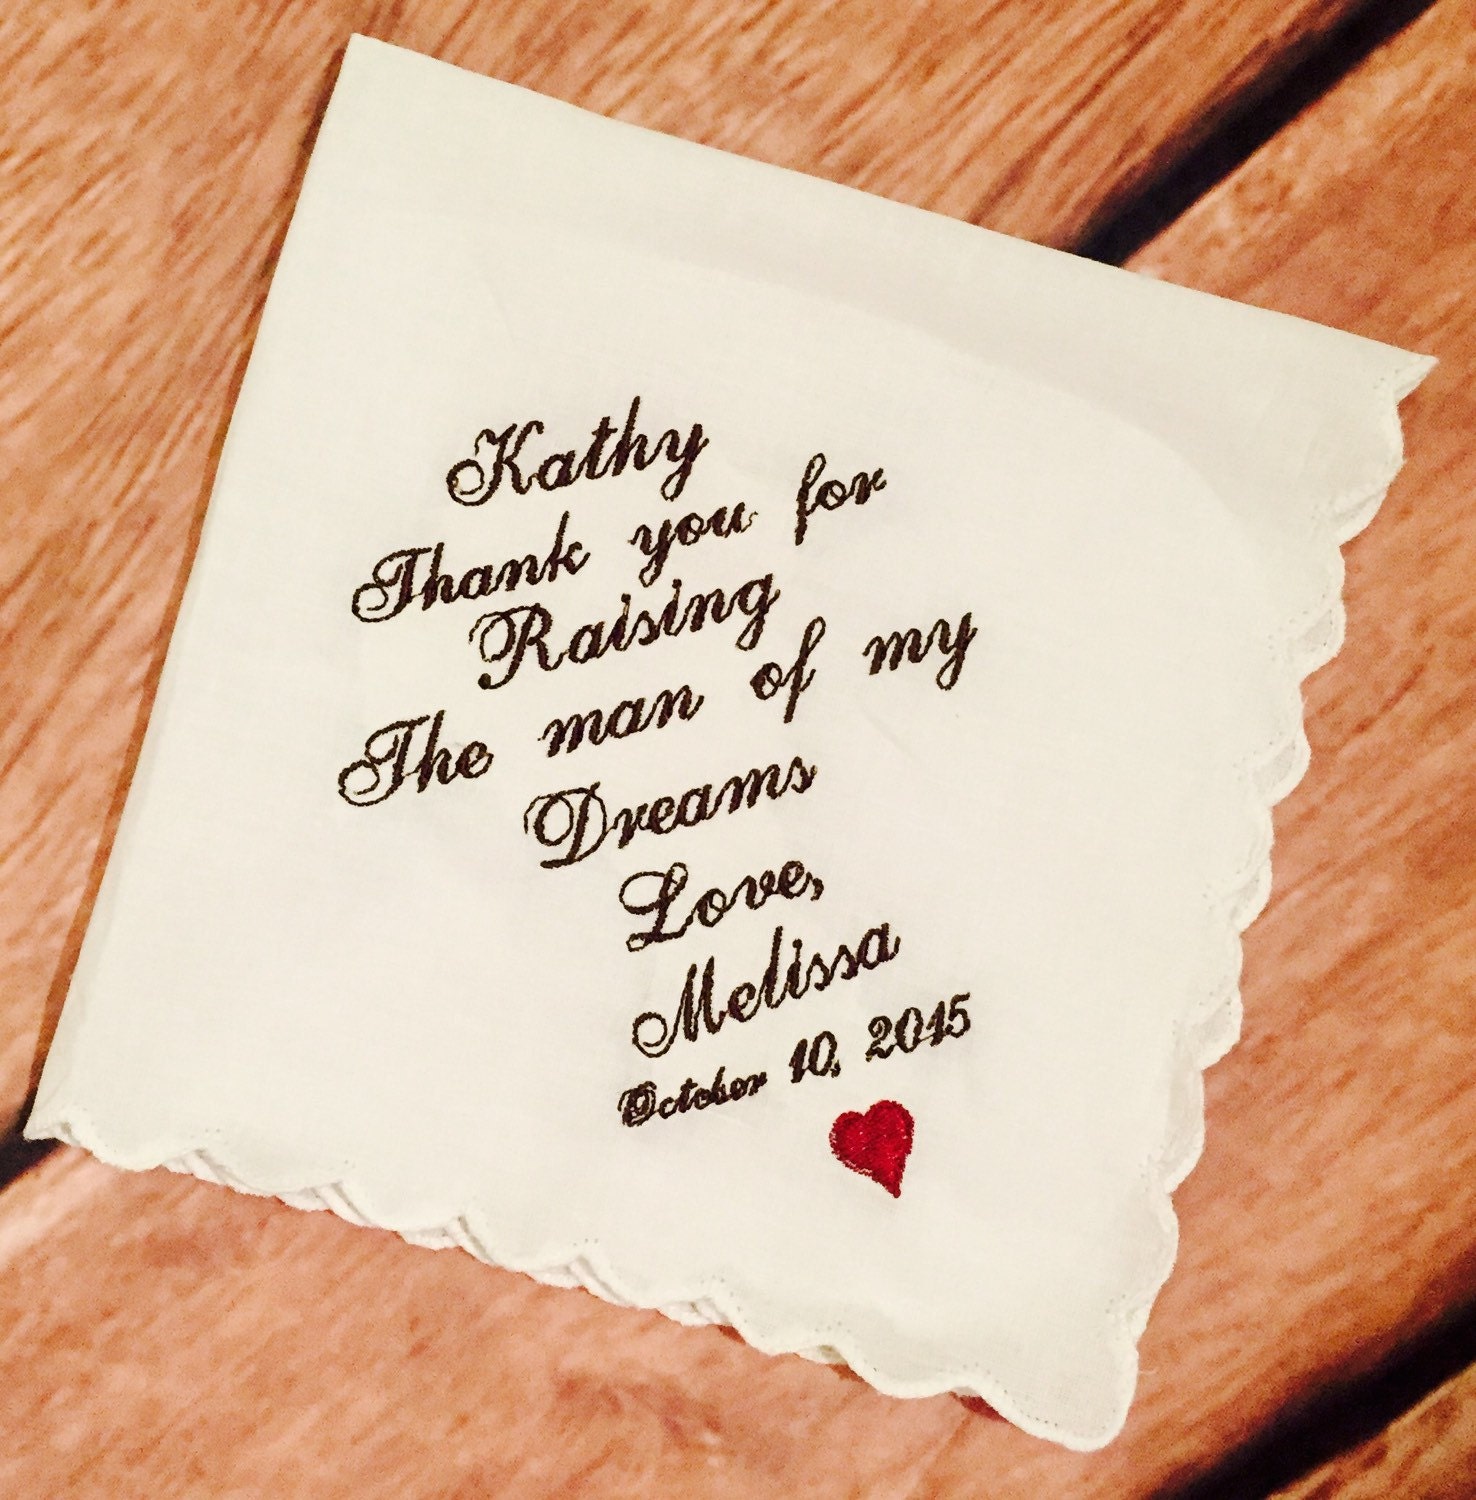 Kathy
Thank you for
Raising
The man of my
Dreams
Love,
Melissa
October 10, 2015